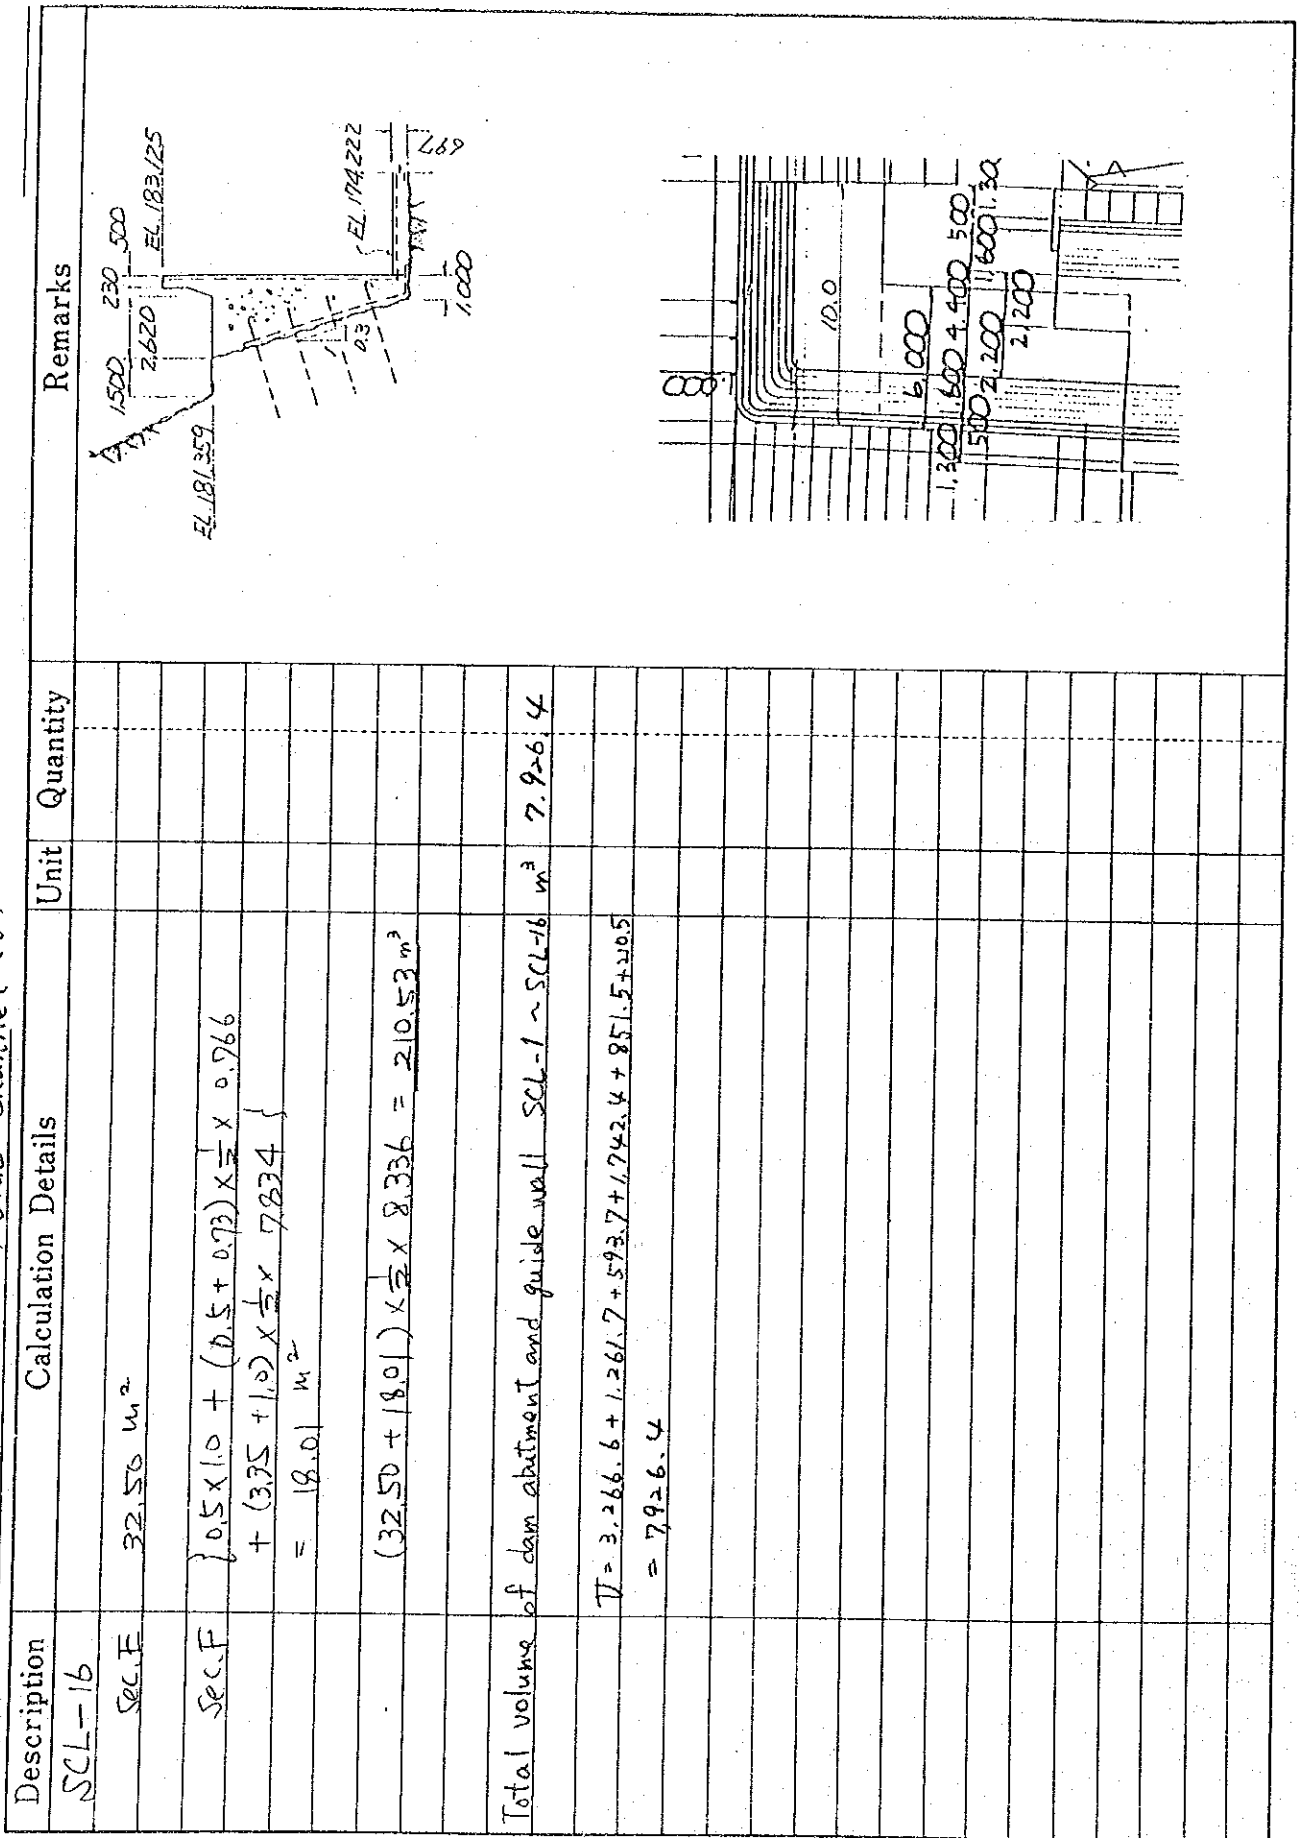 Description Calculation Details Unit Quantity Remarks
SCL-16
Sec. E 32.50 m²
Sec. F {0.5 x 1.0 + (0.5 + 0.73) x 1/2 x 0.766
+ (3.35 + 1.0) x 1/2 x 7.834 }
= 18.01 m²
(32.50 + 18.01) x 1/2 x 8.336 = 210.53 m³
Total volume of dam abutment and guide wall SCL-1 ~ SCL-16 m³ 7.926.4
V = 3,266.6 + 1.261.7 + 593.7 + 1,742.4 + 851.5 + 210.5
= 7,926.4
1.500 230 500
2.620
EL.183.125
EL.181.359
0.3
EL.174.222
1.000
10.0
6,000
1.300 1.600 4.400 500
500 2.200 1.600 1.30
2.200